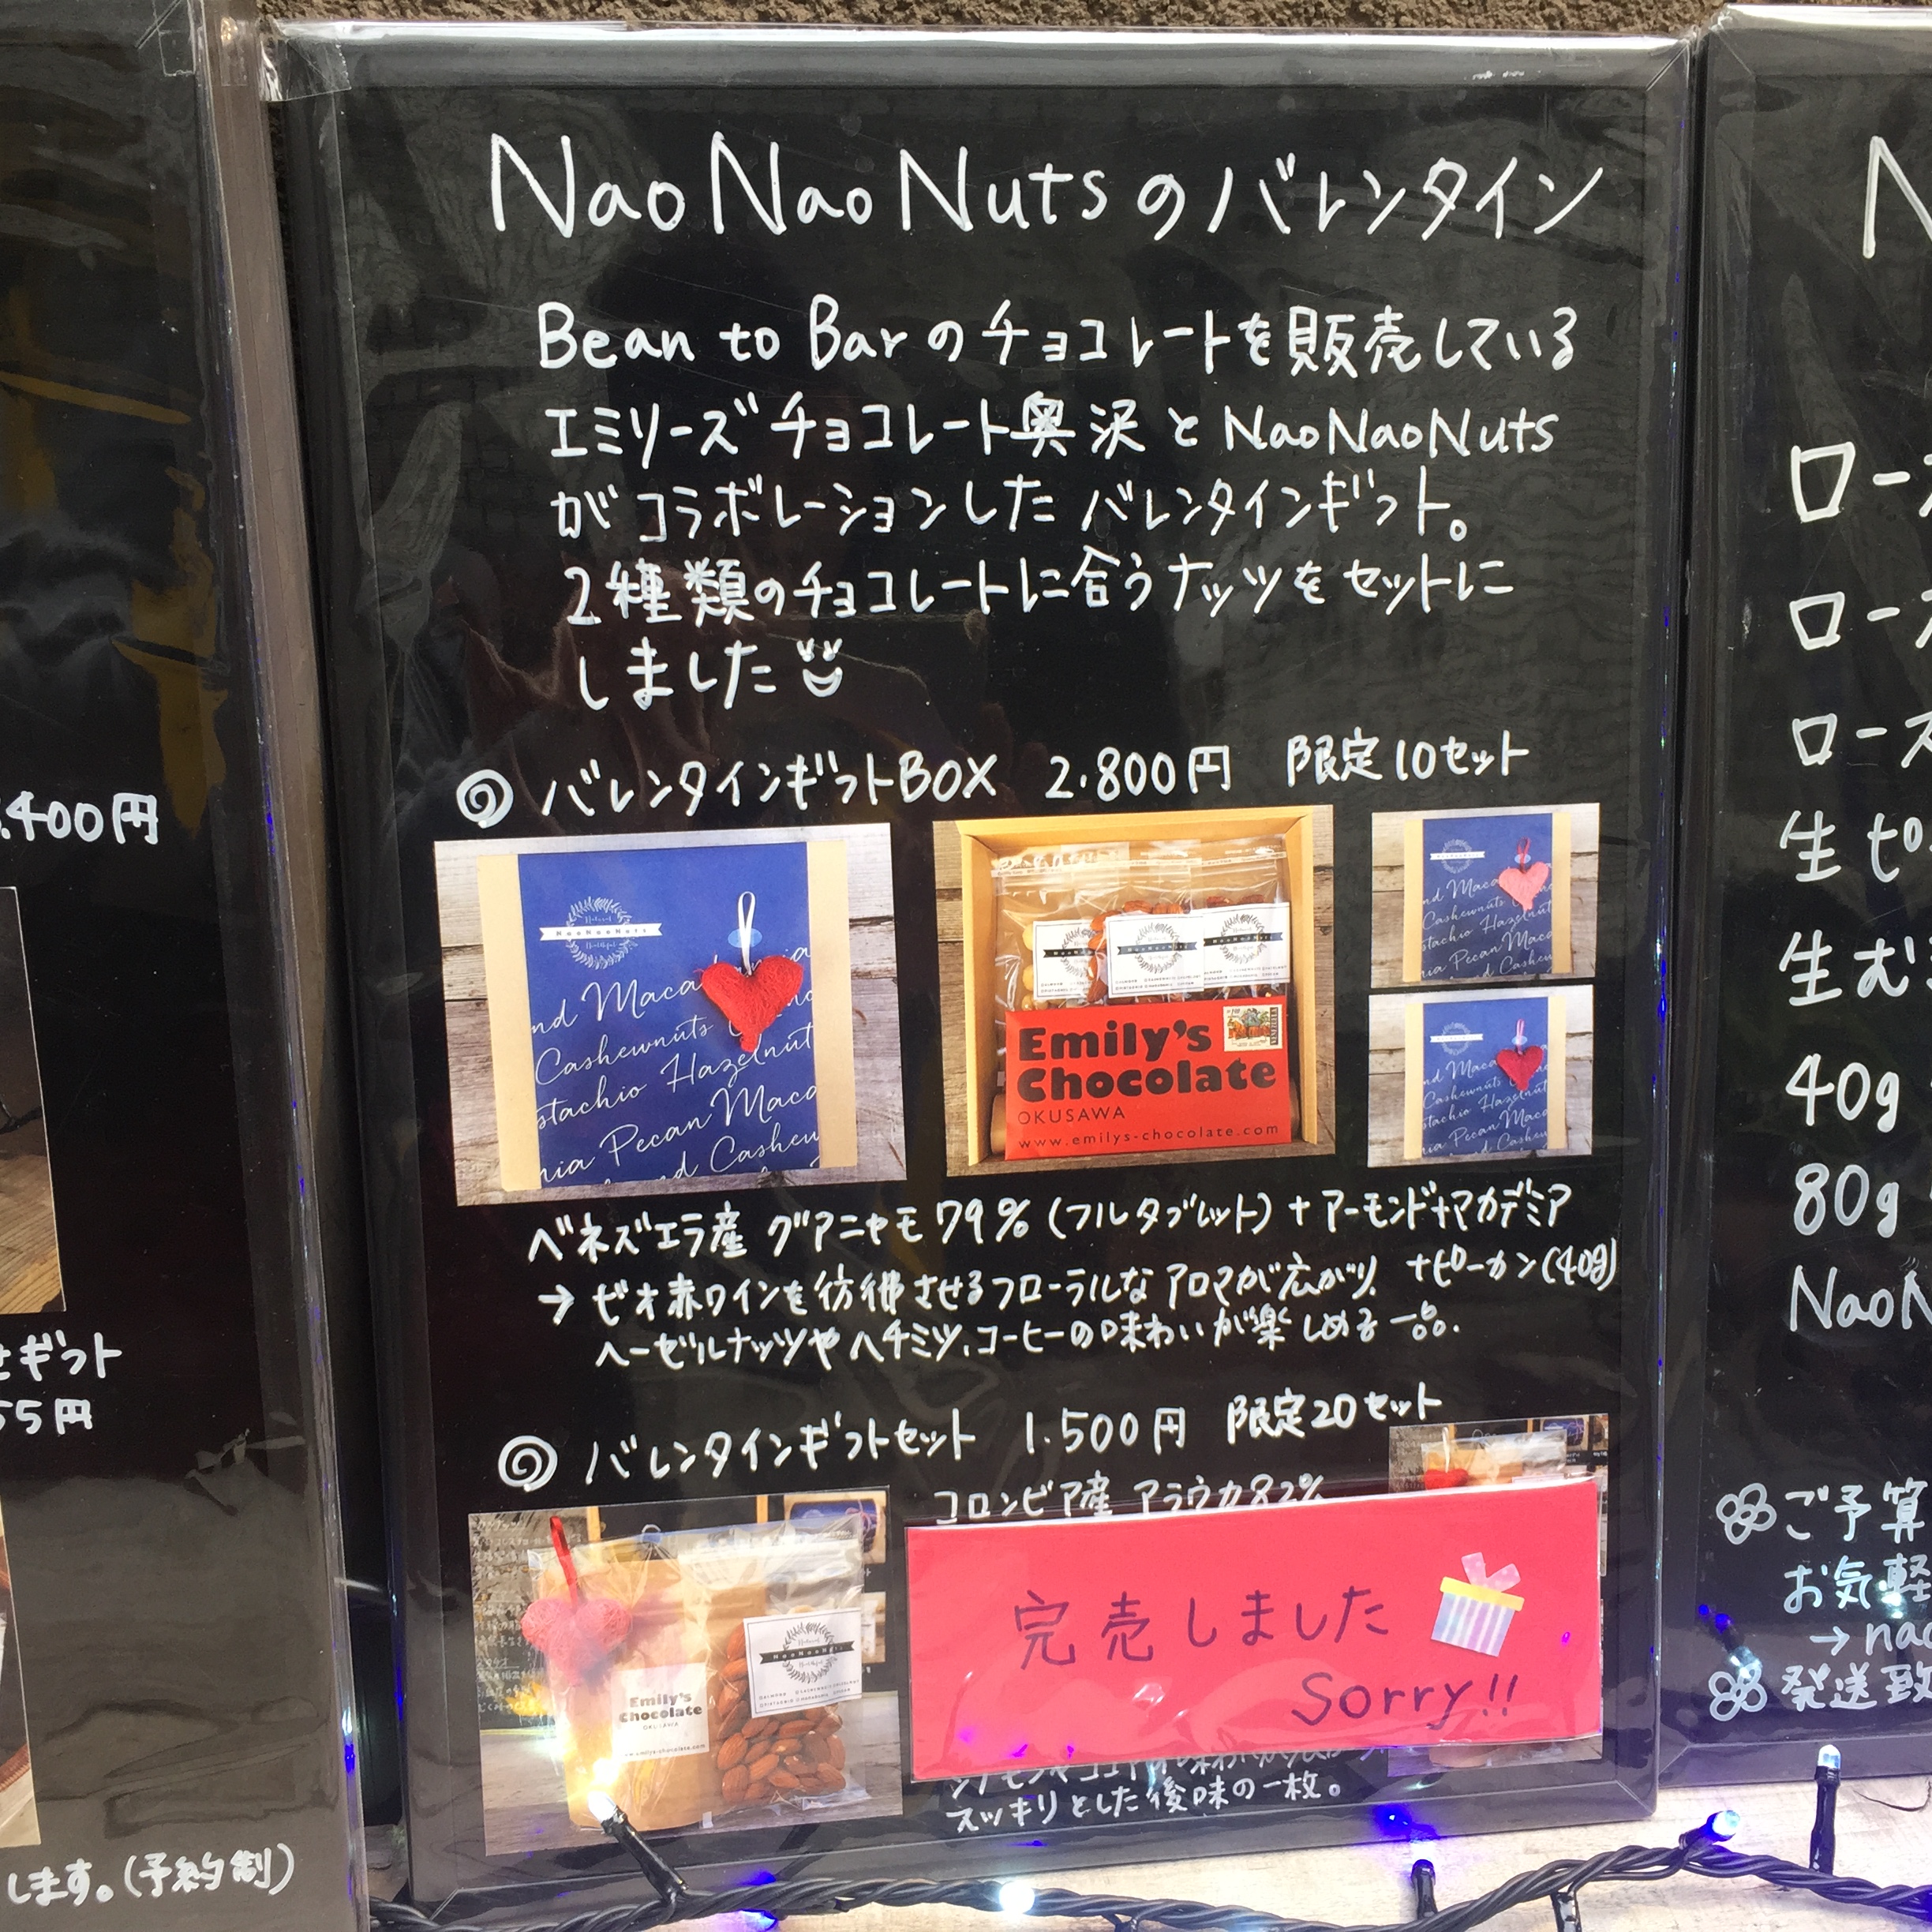 Nao Nao Nutsのバレンタイン
Bean to Barのチョコレートを販売している
エミリーズチョコレート奥沢とNaoNaoNuts
がコラボレーションしたバレンタインギフト。
2種類のチョコレートに合うナッツをセットに
しました
バレンタインギフトBOX 2.800円 限定10セット
NaoNaoNuts
nd Maca
Cashewnuts
stachio Hazelnut
nia Pecan Maca
nd Cashew
Emily's
Chocolate
OKUSAWA
www.emilys-chocolate.com
nd Maca
Cashewnuts
stachio Hazelnut
nia Pecan Maca
nd Cashew
nd Maca
Cashewnuts
stachio Hazelnut
nia Pecan Maca
nd Cashew
ベネズエラ産 グアニャモ79%(フルタブレット)+アーモンド+マカデミア
+ピーカン(40g)
→ビオ赤ワインを彷彿させるフローラルなアロマが広がり、
ヘーゼルナッツやハチミツ、コーヒーの味わいが楽しめる一品.
バレンタインギフトセット 1.500円 限定20セット
コロンビア産 アラウカ82%
Emily's
Chocolate
OKUSAWA
www.emilys-chocolate.com
NaoNaoNuts
完売しました
Sorry!!
スッキリとした後味の一枚。
.400円
せギフト
55円
します。(予約制)
N
ロー
ロー
ロース
生ピ
生む
40g
80g
NaoN
ご予算
お気軽
→nao
発送致